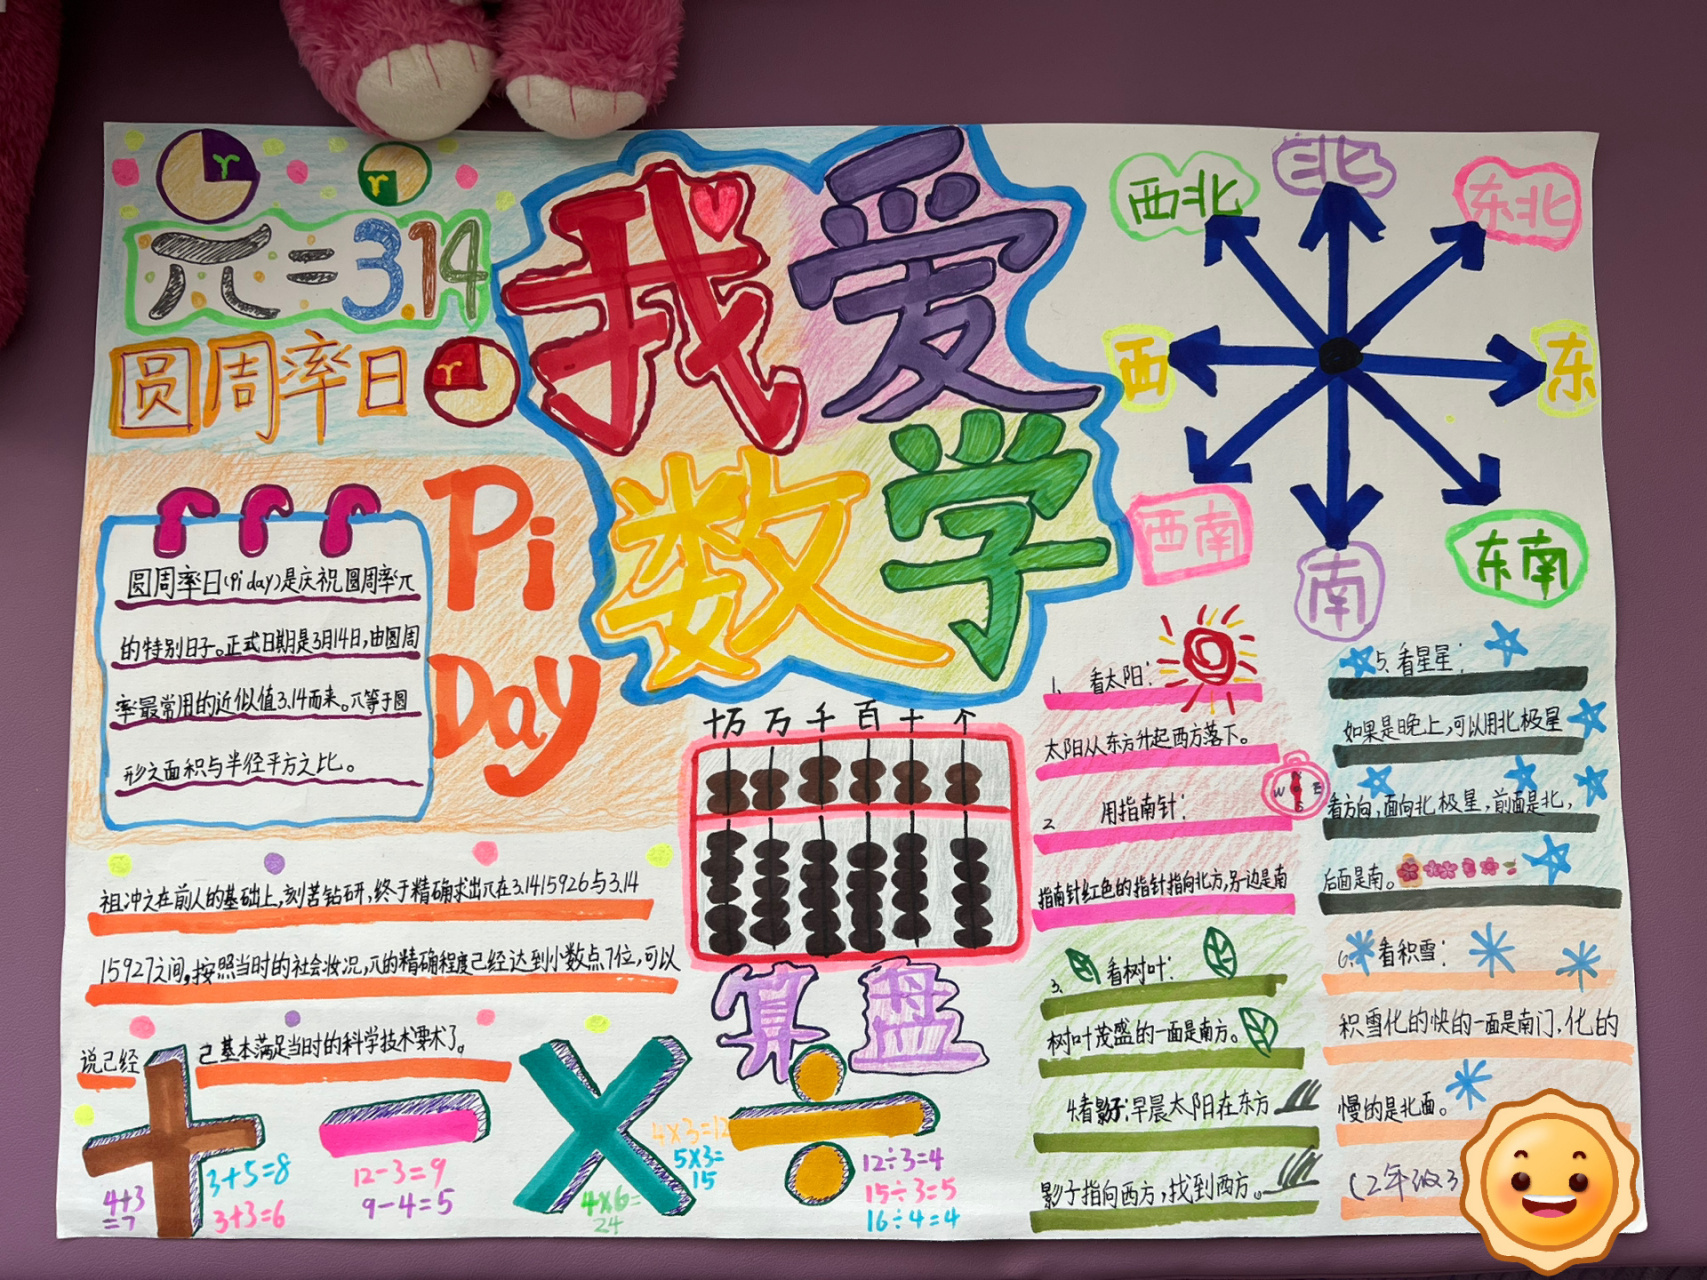 r
r
π=3.14
圆周率日
r
Pi
Day
我爱
数学
圆周率日(Pi day)是庆祝圆周率π
的特别日子。正式日期是3月14日,由圆周
率最常用的近似值3.14而来。π等于圆
形之面积与半径平方之比。
祖冲之在前人的基础上,刻苦钻研,终于精确求出π在3.1415926与3.14
15927之间,按照当时的社会妆况,π的精确程度己经达到小数点7位,可以
说己经
己基本满足当时的科学技术要求了。
+
4+3
=7
3+5=8
3+3=6
-
12-3=9
9-4=5
×
4×3=12
5×3=
15
4×6=
24
÷
12÷3=4
15÷3=5
16÷4=4
十万 万 千 百 十 个
算盘
西北
北
东北
西
东
西南
南
东南
1. 看太阳:
太阳从东方升起西方落下。
2. 用指南针:
W E
S
指南针红色的指针指向北方,另一边是南
3. 看树叶:
树叶茂盛的一面是南方。
4看影子:早晨太阳在东方
影子指向西方,找到西方。
5. 看星星:
如果是晚上,可以用北极星
看方向,面向北极星,前面是北,
后面是南。
6. 看积雪:
积雪化的快的一面是南门,化的
慢的是北面。
(2年级3